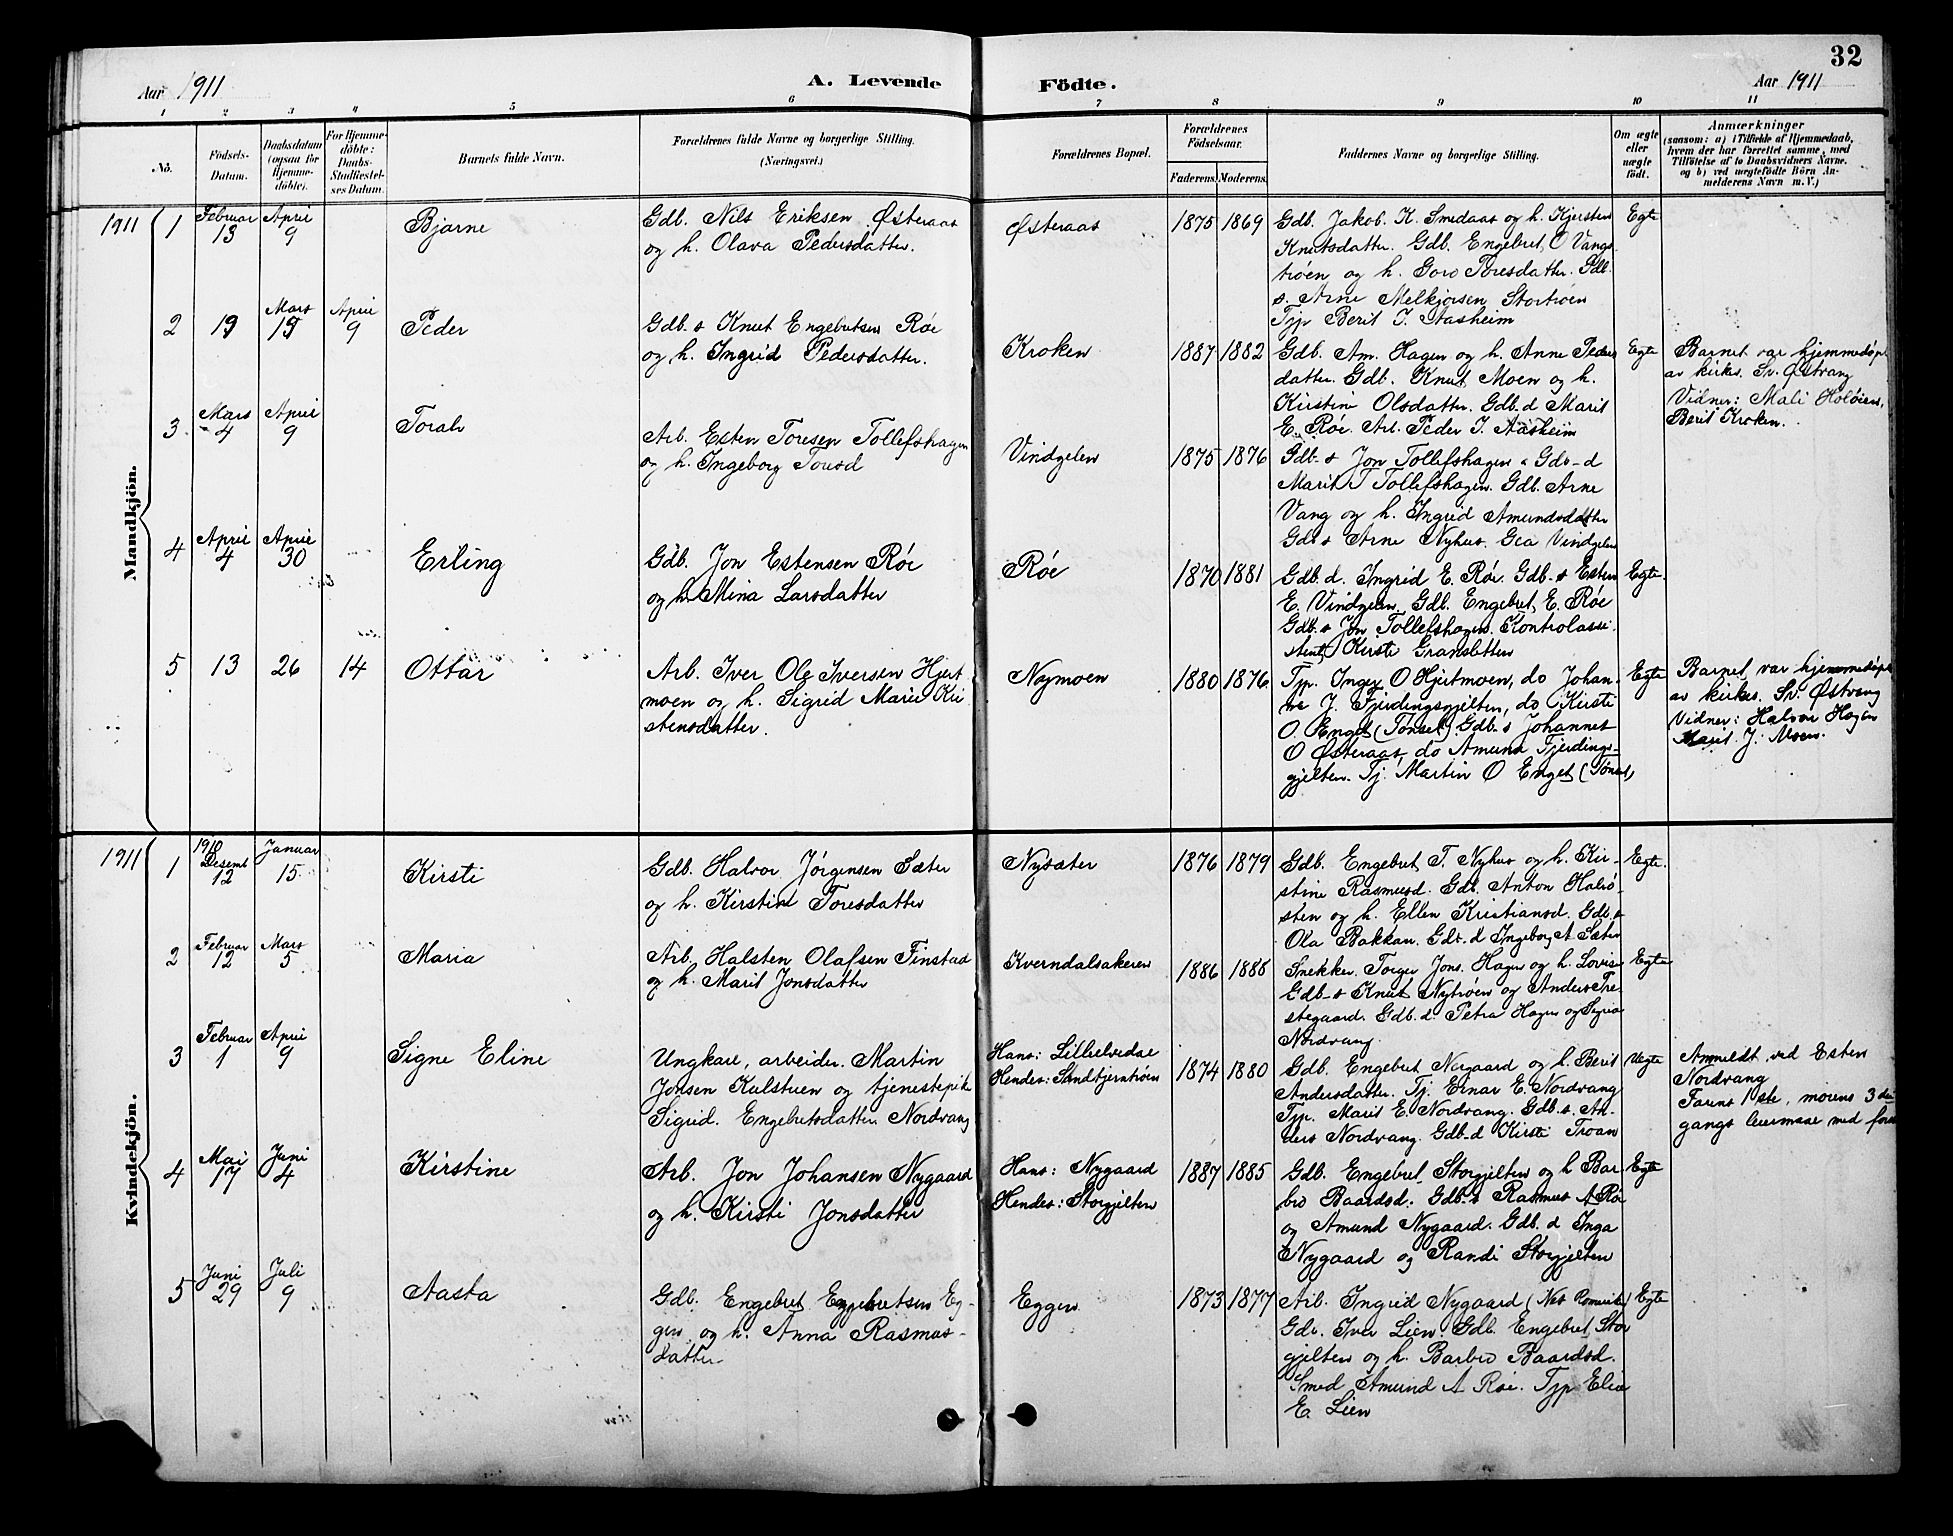 32
Aar 1911
A. Levende
Födte.
Aar 1911
1 2 3 4 5 6 7 8 9 10 11
No.
Födsels-
Datum.
Daabsdatum
(ogsaa for
Hjemme-
döbte).
For Hjemme-
döbte:
Daabs-
Stadfæstel-
ses Datum.
Barnets fulde Navn.
Forældrenes fulde Navne og borgerlige Stilling.
(Næringsvei.)
Forældrenes Bopæl.
Forældrenes
Födselsaar.
Faderens. Moderens.
Faddernes Navne og borgerlige Stilling.
Om ægte
eller
uægte
födt.
Anmærkninger
(saasom: a) i Tilfælde af Hjemmedaab,
hvem der har forrettet samme, med
Tilföielse af to Daabsvidners Navne.
og b) ved uægtefödte Börn An-
melderens Navn m. V.)
Mandkjön.
1911 1
Februar
13
April
9
Bjarne
Gdb. Nils Eriksen Østeraas
og h. Olava Pedersdatter.
Østeraas
1875 1869
Gdb. Jakob K. Smedaas og h. Kjersten
Knutsdatter. Gdb. Engebret O Vangs-
trøen og h. Goro Toresdatter. Gdb.
s. Arne Melkjorsen Stortrøen
Tjp Berit I. Aasheim
Egte
2
19
Mars
19
April
9
Peder
Gdb. s Knut Engebretsen Røe
og h. Ingrid Pedersdatter.
Kroken
1887 1882
Gdb. Am. Hagen og h. Anne Peders
datter. Gdb. Knut Moen og h.
Kirstine Olsdatter. Gdb. d Marit
E. Røe. Arb. Peder I. Aasheim
Egte
Barnet var hjemmedøpt
av kirkes. Sv. Østvang
Vidner: Mali Holøien,
Berit Kroken.
3
Mars
4
April
9
Toralv
Arb. Esten Toresen Tollefshagen
og h. Ingeborg Toresd
Vindgelen
1875 1876
Gdb-s Jon Tollefshagen Gdb-d
Marit T Tollefshagen. Gdb. Arne
Vang og h. Ingrid Amundsdatter
Gdb s Arne Nyhus. Gea Vindgelen
4
April
4
April
30
Erling
Gdb. Jon Estensen Røe
og h. Mina Larsdatter
Røe
1870 1881
Gdb. d. Ingrid E. Røe. Gdb-s Esten
E. Vindgelen Gdb. Engebret E. Røe
Gdb. s Jon Tollefshagen. Kontrolassi-
stent Kirsti Gransletten
Egte.
5
13
26
14
Ottar
Arb. Iver Ole Iversen Hjert
moen og h. Sigrid Marie Kri
stensdatter.
Nymoen
1880 1876
Tjp. Inger O Hjertmoen, do Johan-
ne J. Fjerdingsgjelten, do Kirsti
O. Enget (Tønset). Gdb-s Johannes
O Østeraas, do Amund Fjerdings-
gjelten. Tj. Martin O Enget (Tønset)
Egte
Barnet var hjemmedøpt
av kirkes. Sv. Østvang
Vidner: Halvor Hagen
Marit J. Moen.
Kvindekjön.
1911 1
1910
Desemb
12
Januar
15
Kirsti
Gdb. Halvor Jørgensen Sæter
og h. Kirstine Toresdatter
Nysæter
1876 1879
Gdb. Engebret T. Nyhus og h. Kir-
stine Rasmusd. Gdb. Anton Halrø-
sten og h. Ellen Kristiansd. Gdb. s
Ola Bakkan. Gdb. d Ingeborg A. Sæter
Egte.
2
Februar
12
Mars
5
Maria
Arb. Halsten Olafsen Finstad
og h. Marit Jonsdatter
Kverndalsakeren
1886 1885
Snekker. Torger Jons. Hagen og h. Lovise
Gdb-s Knut Nytrøen og Anders Tre-
stegaard. Gdb. d. Petra Hagen og Signe
Nordvang.
Egte
3
Februar
1
April
9
Signe Eline
Ungkare, arbeider. Martin
Jonsen Kulstuen og tjenestepike
Sigrid. Engebretsdatter. Nordvang
Hans: Lillelvedal
Hendes: Sandtjerntrøen
1874 1880
Gdb. Engebret Norgaard og h. Berit
Andersdatter. Tj. Einar E. Nordvang
Tjp. Marit E. Nordvang. Gdb. s. An-
ders Nordvang. Gdb-d Kirsti Troan
Uegte
Anmeldt ved Esten
Nordvang
Farens 1ste, morens 3die
gangs leiermaal med fore
4
Mai
17
Juni
4
Kirstine
Arb. Jon Johansen Nygaard
og h. Kirsti Jonsdatter
Hans: Nygaard
Hendes: Storgjelten
1887 1885
Gdb. Engebret Storgjelten og h Bar
bro Baardsd. Gdb. s Rasmus A Røe
og Amund Nygaard. Gdb. d Inga
Nygaard og Randi Storgjelten
Egte
5
Juni
29
Juli
9
Aasta
Gdb. Engebret Engebretsen Eg-
gen og h. Anna Rasmus-
datter
Eggen
1873 1877
Arb. Ingrid Nygaard
Gdb. Iver Lien. Gdb. Engebret Stor
gjelten og h. Barbro Baardsd.
Smed Amund A Røe. Tjp Elie
E. Lien
Egte